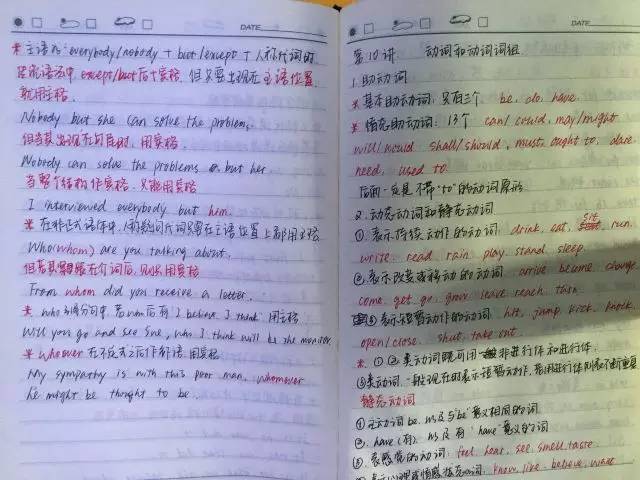 DATE
* 主语为: everybody/nobody + but/except + 人称代词的
except/but后+宾格. 但只要出现在主语位置
就用主格.
Nobody but she can solve the problem.
但当其出现在句尾时, 用宾格
Nobody can solve the problems but her.
当整个结构作宾格, 只能用宾格
I interviewed everybody but him.
* 在非正式语体中, 疑问代词只要在主语位置上都用主格
Who(whom) are you talking about.
但若其紧跟在介词后, 则只用宾格
From whom did you receive a letter.
* who 引导的从句中, 若who后有 I believe, I think 用主格
Will you go and see Sue, who I think will be the monitor.
* whoever 在不定式之后作补语, 用宾格
My sympathy is with this poor man, whomever
he might be thought to be.
DATE
第10讲. 动词和动词词组
1. 助动词
* 基本助动词: 只有三个 be, do, have.
* 情态助动词: 13个 can/could, may/might
will/would shall/should, must, ought to, dare,
need, used to.
后面一定是不带"to"的动词原形
2. 动态动词和静态动词
①表示持续动作的动词: drink, eat, sit, run,
write, read, rain, play, stand, sleep.
②表示改变或移动的动词: arrive, become, change,
come, get, go, grow, leave, reach, turn
③表示短暂动作的动词: hit, jump, kick, knock,
open/close, shut, take out.
* ①②类动词既可用非进行体和进行体.
③类动词, 一般现在时表示短暂动作, 若用进行体则表示不断重复
静态动词
①主动词be, 以及与"be"意义相同的词
②. have (有), 以及有"have"意义的词
③. 表感觉的动词: feel, hear, see, smell, taste.
know, like, believe, want